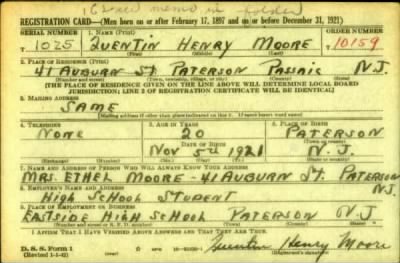 (Cross memo in folder)
REGISTRATION CARD—(Men born on or after February 17, 1897 and on or before December 31, 1921)
SERIAL NUMBER 1. NAME (Print) ORDER NUMBER
T 1025 QUENTIN HENRY MOORE 10159
2. PLACE OF RESIDENCE (Print)
41 AUBURN ST. PATERSON PASSAIC N.J.
(Number and street) (Town, township, village, or city) (County) (State)
[THE PLACE OF RESIDENCE GIVEN ON THE LINE ABOVE WILL DETERMINE LOCAL BOARD
JURISDICTION; LINE 2 OF REGISTRATION CERTIFICATE WILL BE IDENTICAL]
3. MAILING ADDRESS
SAME
[Mailing address if other than place indicated on line 2. If same insert word same]
4. TELEPHONE 5. AGE IN YEARS 6. PLACE OF BIRTH
NONE 20 PATERSON
DATE OF BIRTH (Town or county)
NOV 5TH 1921 N.J.
(Exchange) (Number) (Mo.) (Day) (Yr.) (State or country)
7. NAME AND ADDRESS OF PERSON WHO WILL ALWAYS KNOW YOUR ADDRESS
MRS. ETHEL MOORE - 41 AUBURN ST. PATERSON N.J.
8. EMPLOYER'S NAME AND ADDRESS
HIGH SCHOOL STUDENT
9. PLACE OF EMPLOYMENT OR BUSINESS
EASTSIDE HIGH SCHOOL PATERSON N.J.
(Number and street or R. F. D. number) (Town) (County) (State)
I AFFIRM THAT I HAVE VERIFIED ABOVE ANSWERS AND THAT THEY ARE TRUE.
D. S. S. Form 1 Quentin Henry Moore
(Revised 1-1-42) (Registrant's signature)